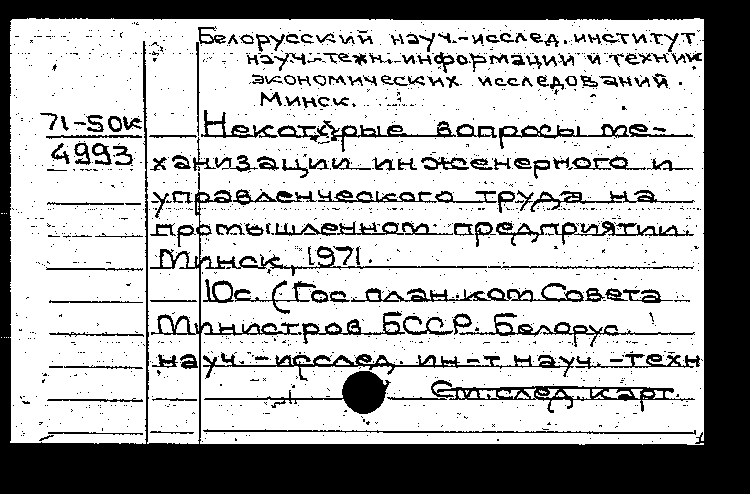 Белорусский науч.-исслед. институт
науч.-техн. информации и техник
экономических исследований.
Минск.
71-50к
4993
Некоторые вопросы ме-
ханизации инженерного и
управленческого труда на
промышленном предприятии.
Минск, 1971.
10с. (Гос. план. ком Совета
Министров БССР. Белорус.
науч. -исслед. ин-т науч. -техн
См. след. карт.